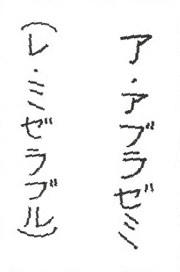 ア・アブラゼミ
(レ・ミゼラブル)